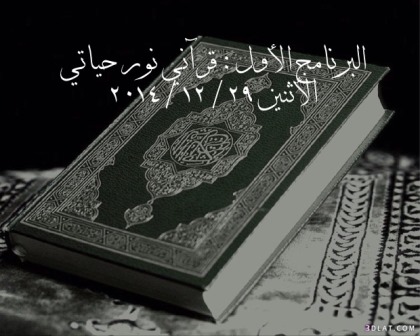 البرنامج الأول : قرآني نور حياتي
الأثنين ٢٩ / ١٢ / ٢٠١٤
3DLAT.COM